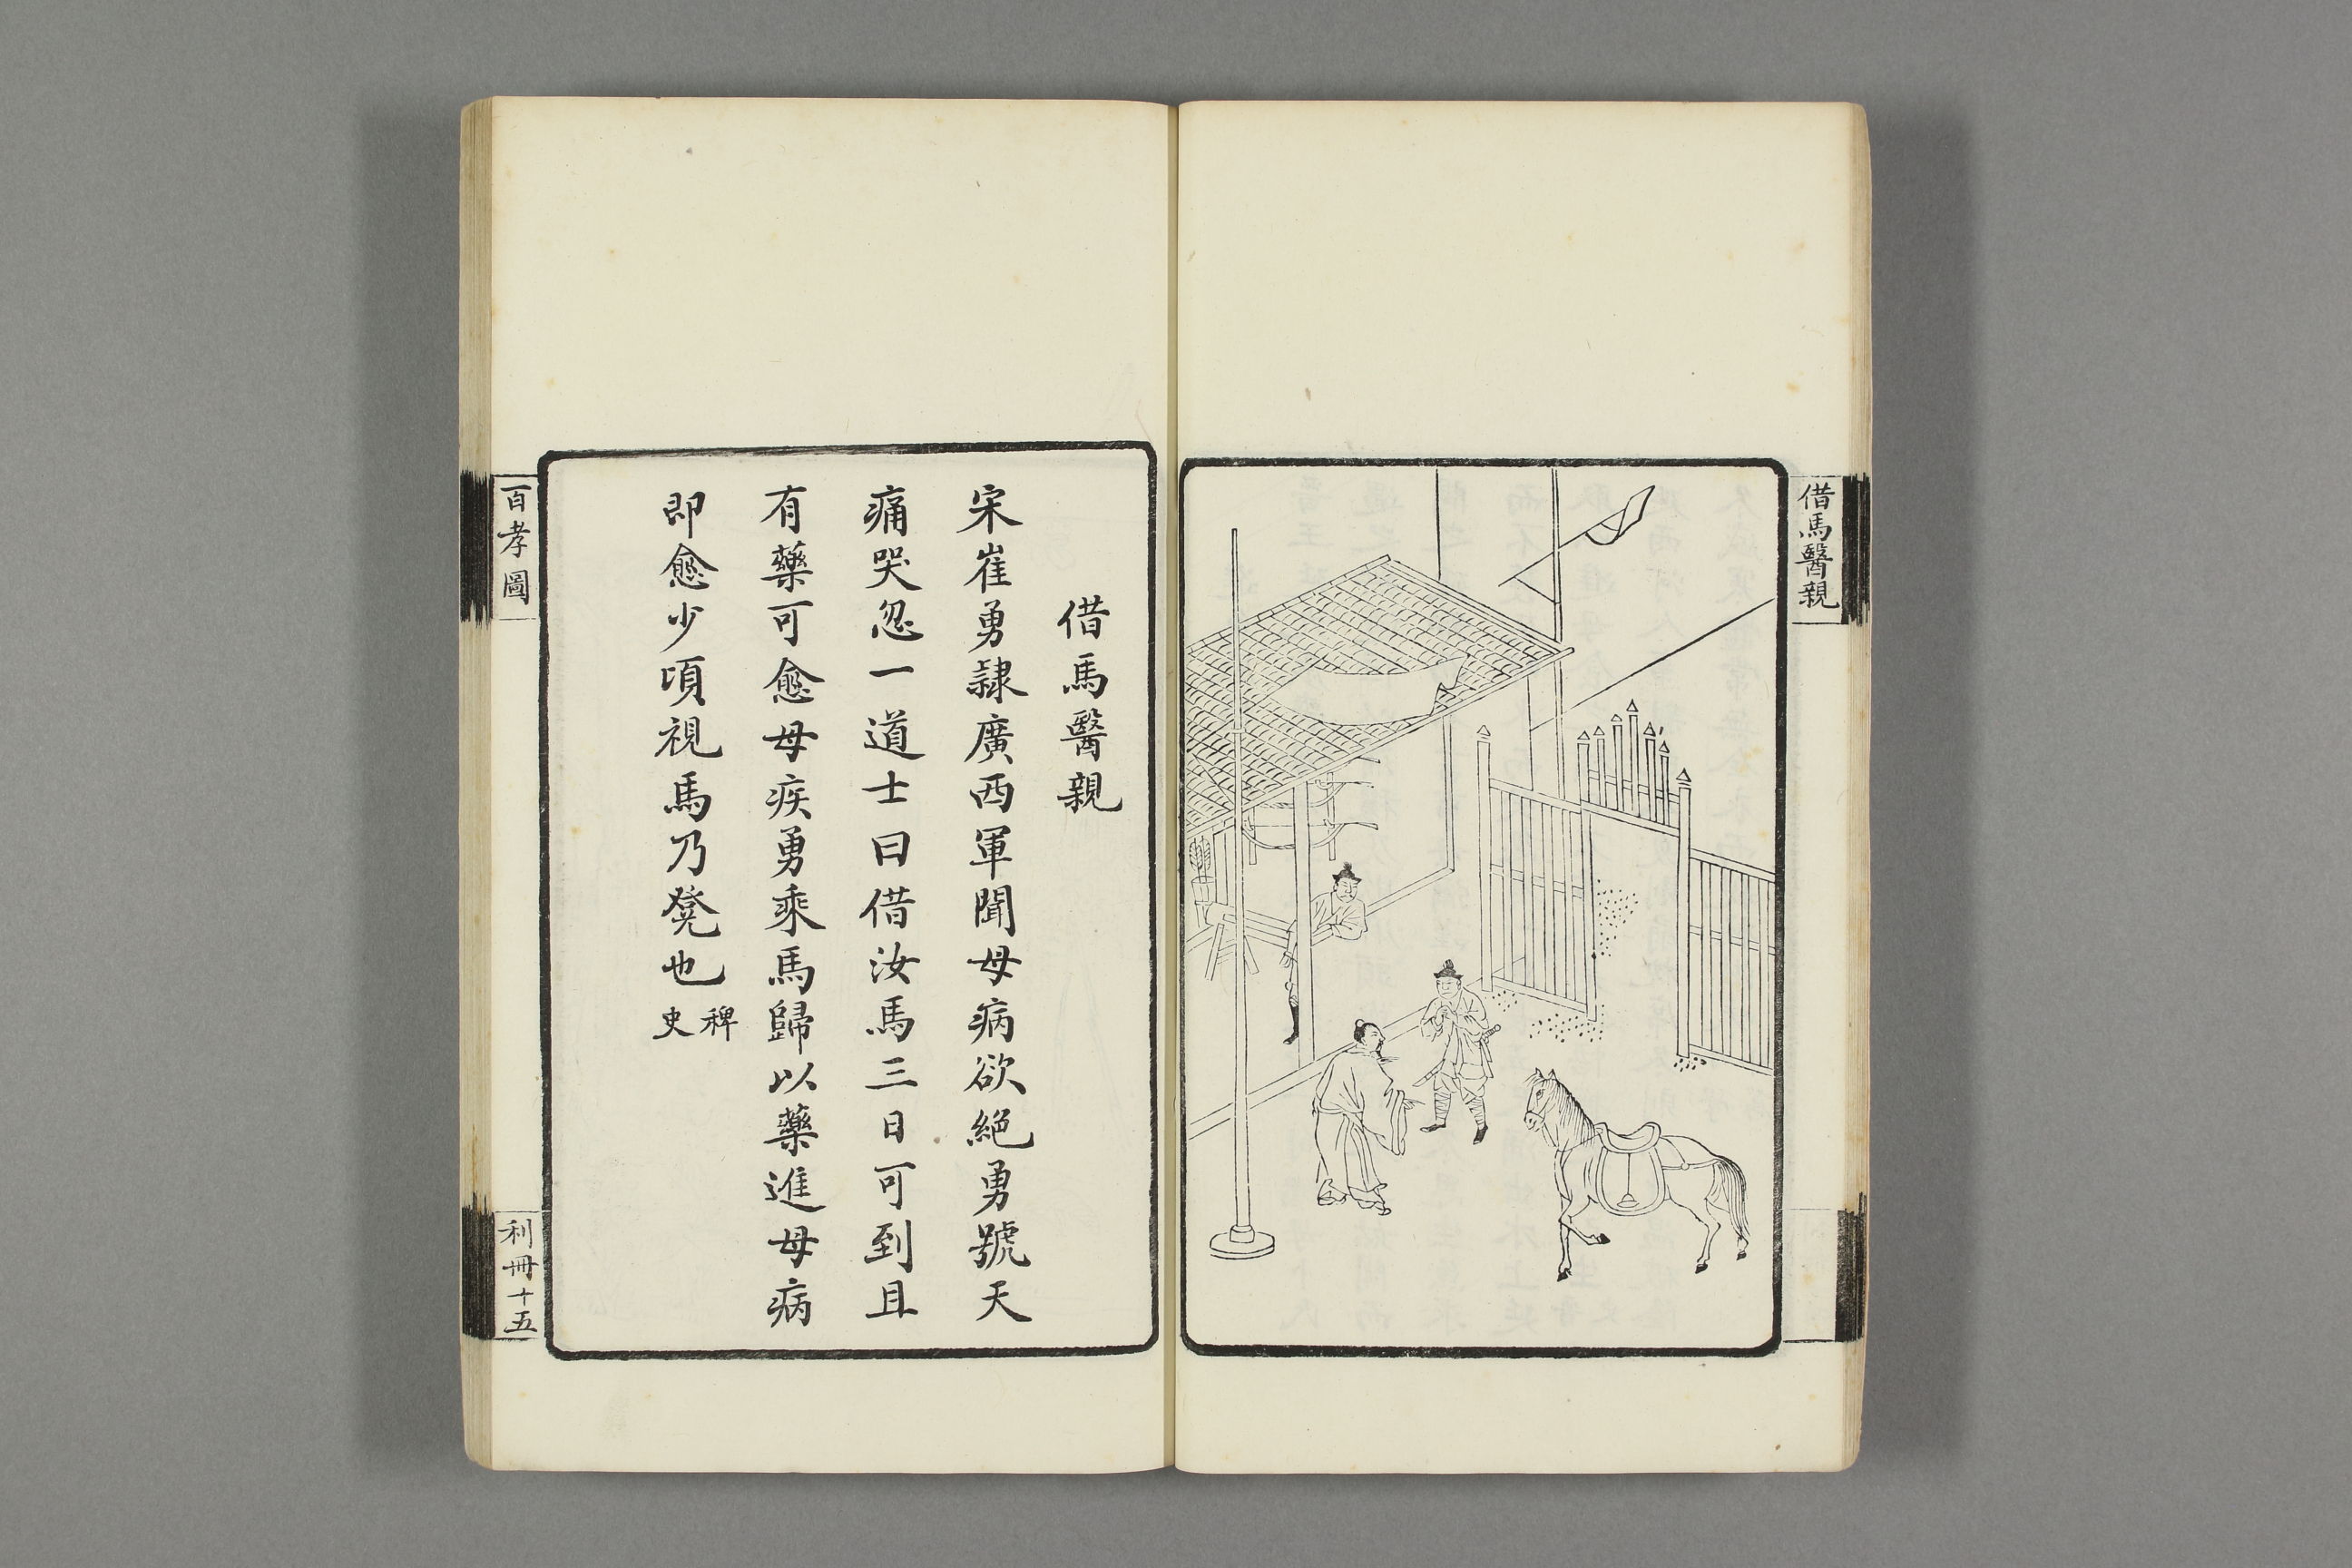 借馬醫親
借馬醫親
宋崔勇隷廣西軍聞母病欲絕勇號天
痛哭忽一道士曰借汝馬三日可到且
有藥可愈母疾勇乘馬歸以藥進母病
即愈少頃視馬乃凳也
稗
史
百孝圖
利冊十五